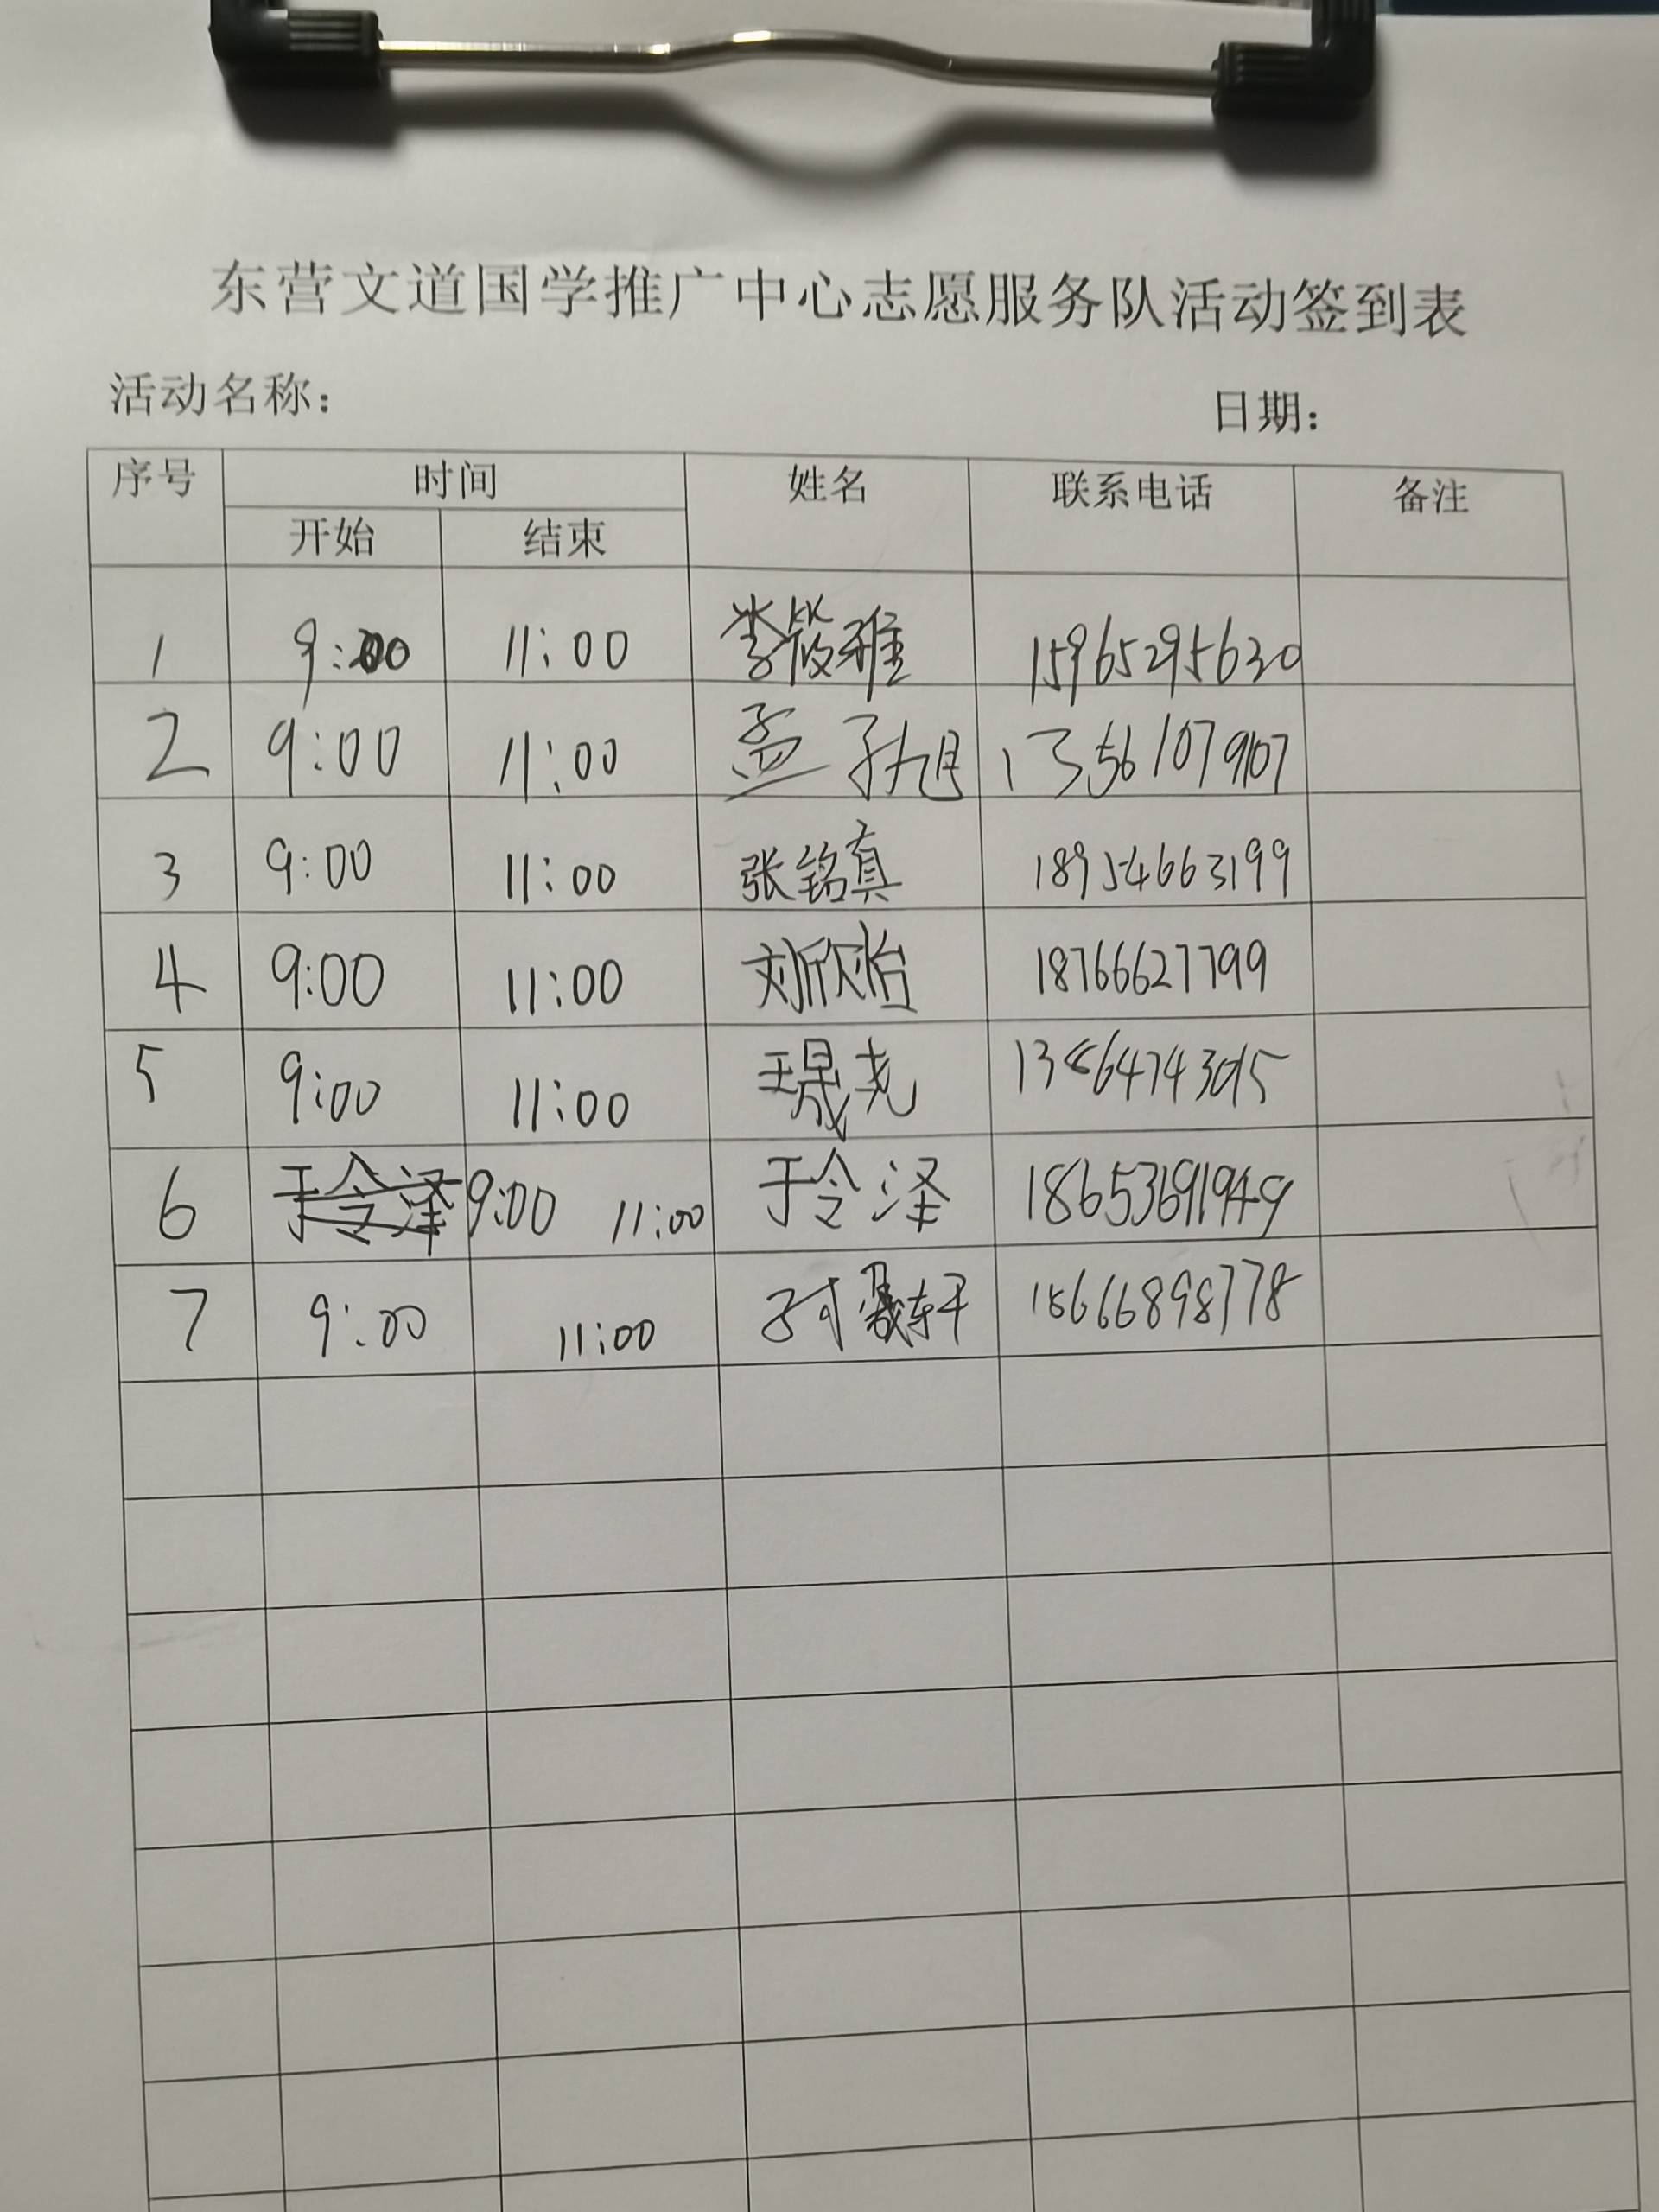 东营文道国学推广中心志愿服务队活动签到表
活动名称： 日期：
序号 时间 姓名 联系电话 备注
开始 结束
1 9:00 11:00 李筱雅 15965295630
2 9:00 11:00 孟子旭 13561079107
3 9:00 11:00 张铭真 18954663199
4 9:00 11:00 刘欣怡 18766627799
5 9:00 11:00 王晟尧
6 于令泽 9:00 11:00 于令泽 18653691949
7 9:00 11:00 轩 18666898778